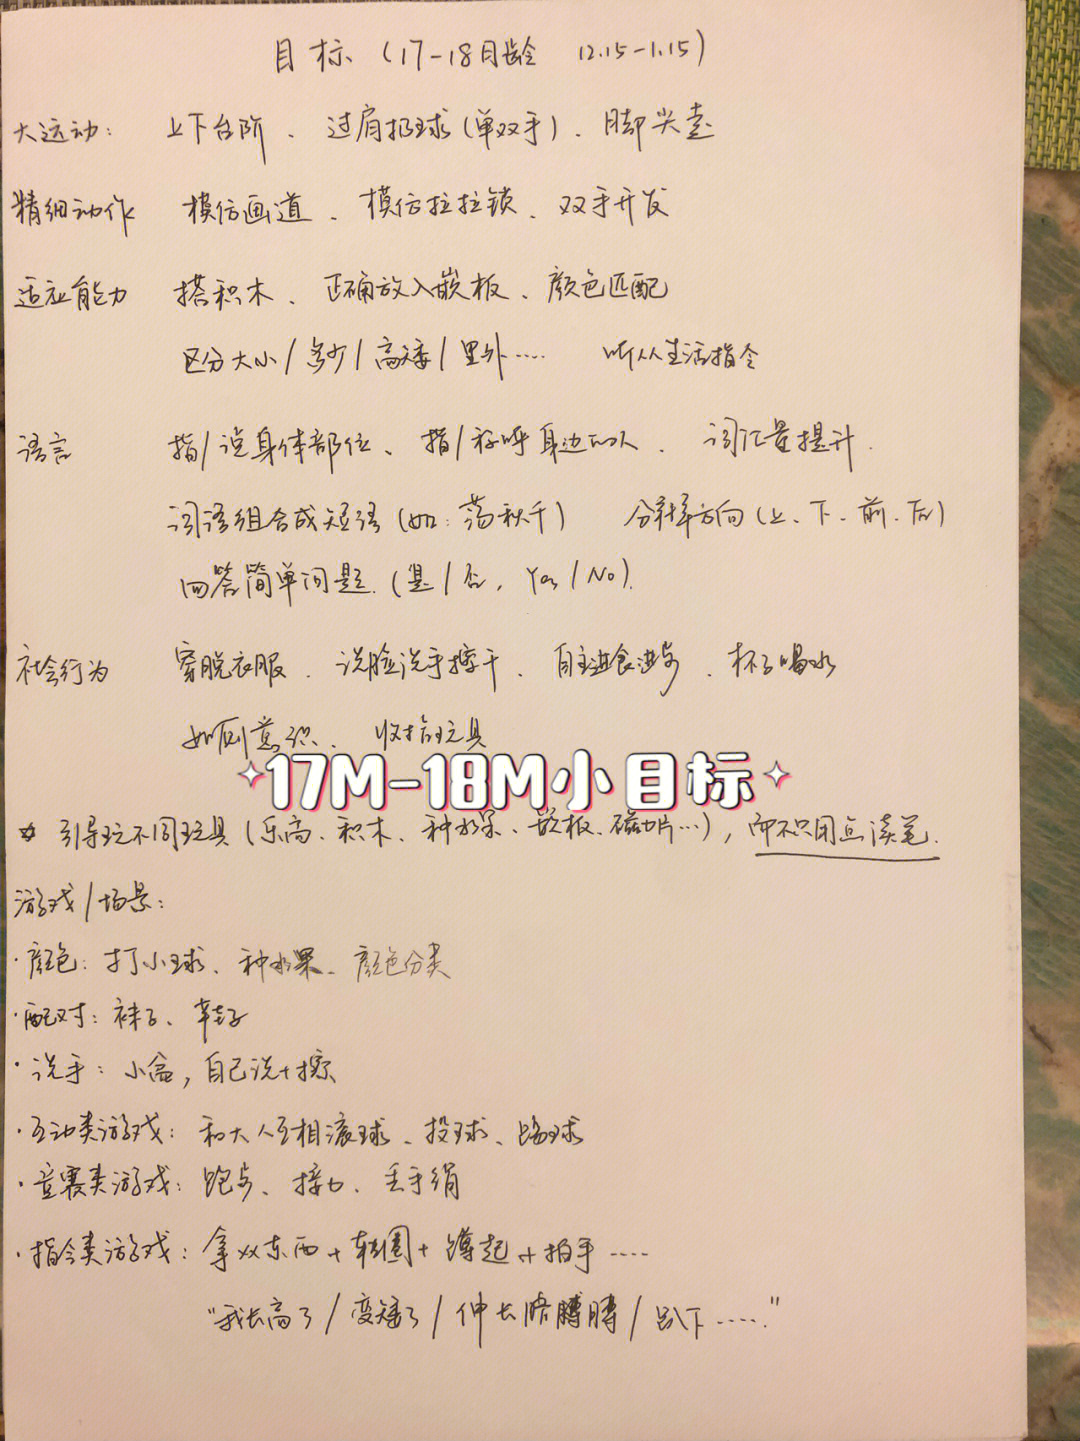 目标 (17-18月龄 12.15-1.15)
大运动： 上下台阶、过肩扔球(单双手)、脚尖走
精细动作 模仿画道、模仿拉拉锁、双手开发
适应能力 搭积木、正确放入嵌板、颜色匹配
区分大小/多少/高矮/里外…… 听从生活指令
语言 指/说身体部位、指/称呼身边的人、词汇量提升.
词语组合成短语(如：荡秋千) 分辨方向(上、下、前、后)
回答简单问题.(是/否，Yes/No).
社会行为 穿脱衣服、洗脸洗手擦干、自主进食进步、杯子喝水
如厕意识、收拾玩具
17M-18M小目标
☆ 引导玩不同玩具(乐高、积木、种水果、嵌板、磁力片…)，而不只用点读笔.
游戏/场景：
·颜色：打小球、种水果、颜色分类
·配对：袜子、鞋子
·洗手：小盆，自己洗+擦
·互动类游戏：和大人互相滚球、投球、踢球
·竞赛类游戏：跑步、接力、丢手绢
·指令类游戏：拿XX东西+转圈+蹲起+拍手……
“我长高了/变矮了/伸长胳膊/趴下……”